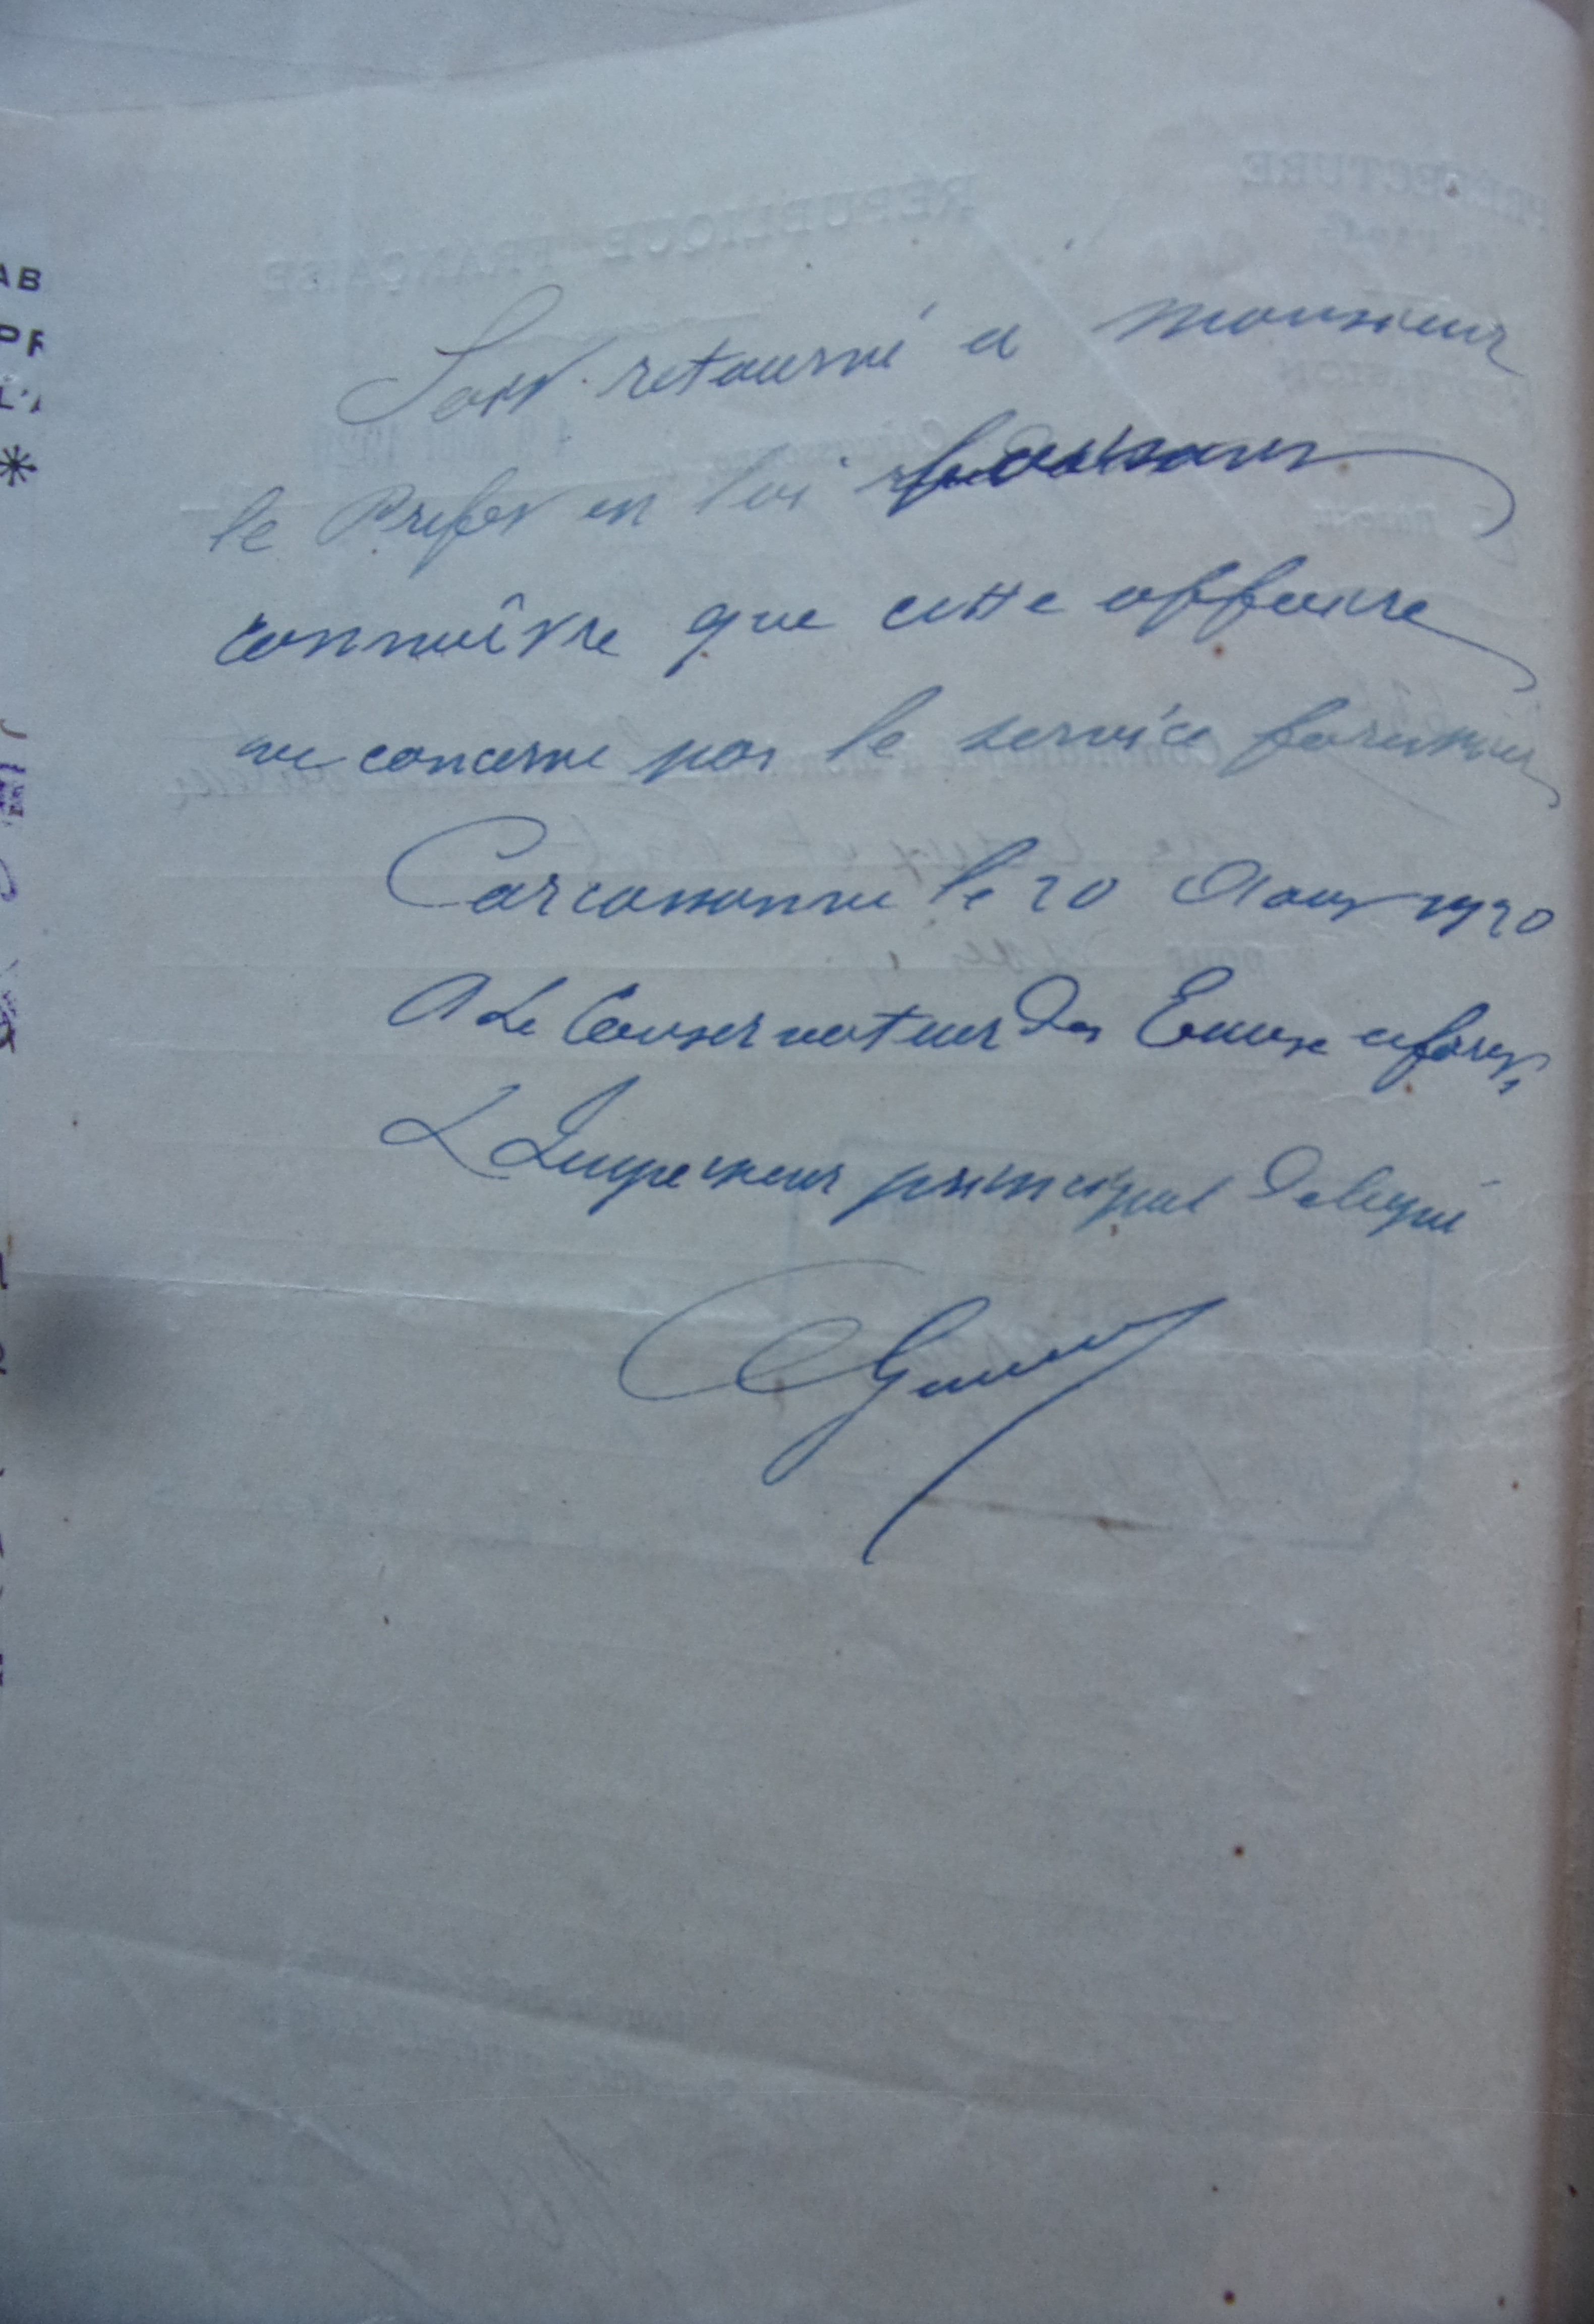 Soit retourné à Monsieur
le Préfet en lui faisant
connaître que cette affaire
ne concerne pas le service forestier
Carcassonne le 20 Aout 1920
Le Conservateur des Eaux et forets
L'Inspecteur principal délégué
AB
PR
L'A
RÉPUBLIQUE FRANÇAISE
PRÉFECTURE